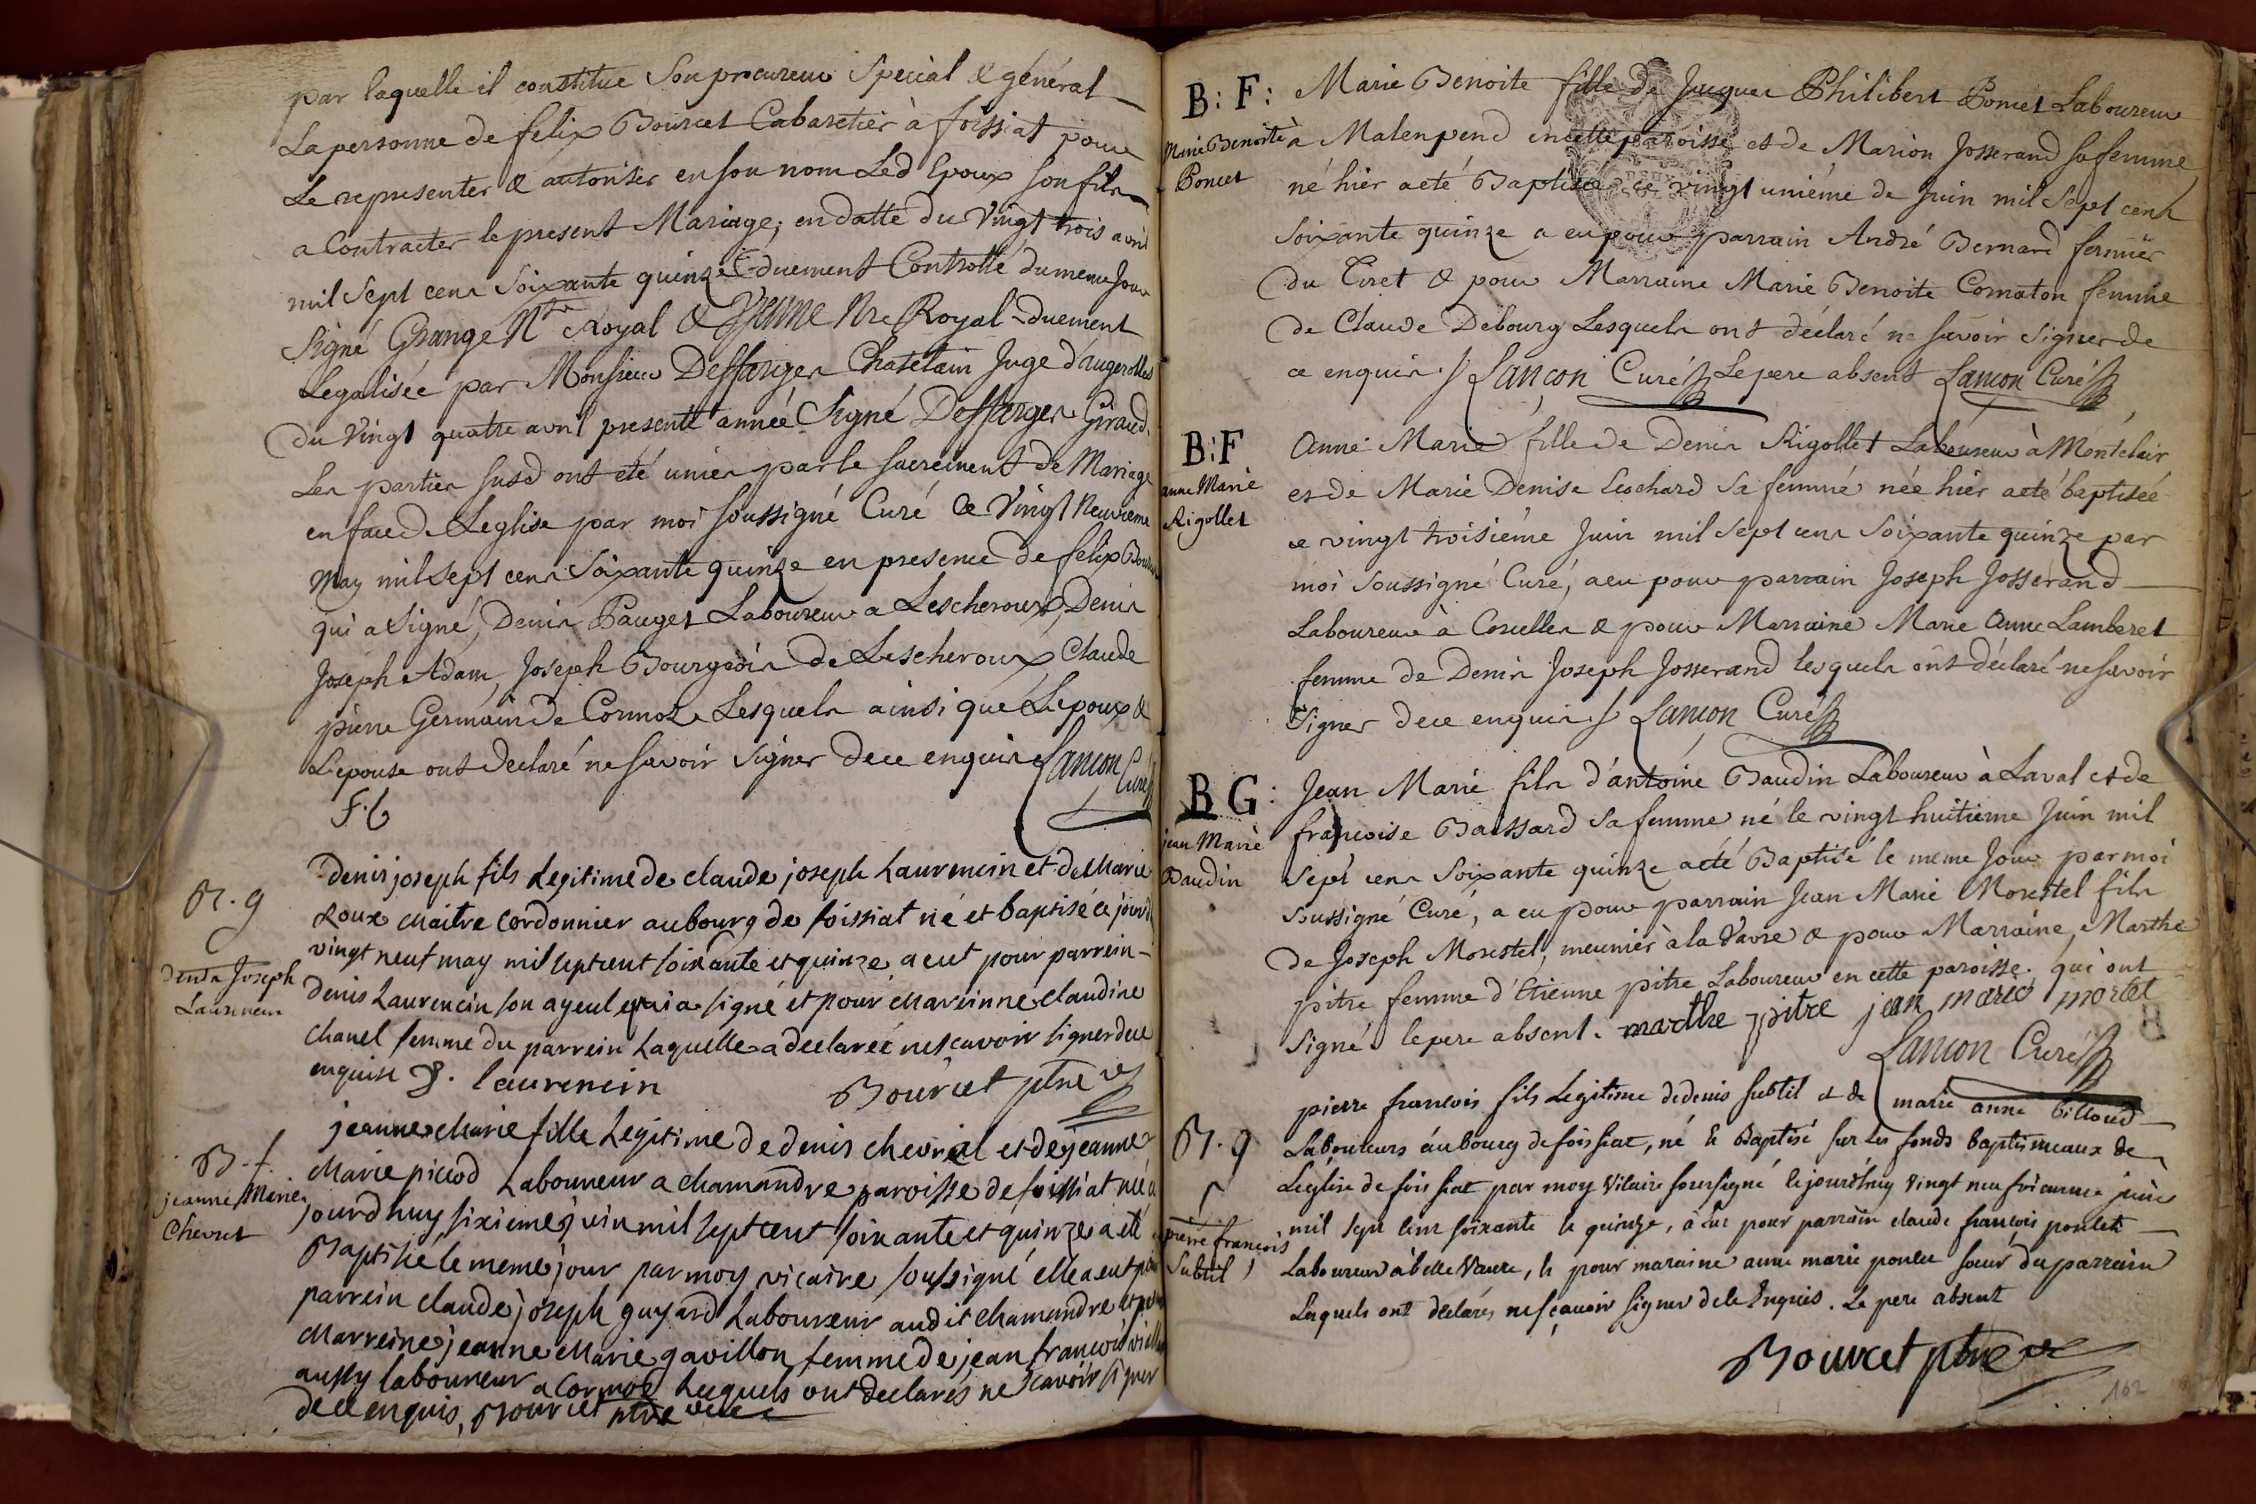 par laquelle il constitue Son procureur Special & général
La personne de felix Bourcet Cabaretier à foissiat pour
Le representer & autoriser en son nom Led Epoux son fils
a Contracter le present Mariage, en datte du Vingt trois avril
mil Sept cens Soixante quinze duement Controllé du meme Jour
Signé Grange Nre Royal & Nre Royal duement
Legalisée par Monsieur Deffarges Chatelain Juge d'augerolles
du Vingt quatre avril presente année Signé Deffarges Giraud
Les parties susd ont été unies par le sacrement de Mariage
en face de Leglise par moi soussigné Curé Ce Vingt Neuvieme
May mil Sept cens Soixante quinze en presence de felix
qui a Signé, Denis Pauget Laboureur a Lescheroux, Denis
Joseph Adam, Joseph Bourgeois de Lescheroux, Claude
pierre Germain de Cormoz Lesquels ainsi que L'epoux &
L'epouse ont declaré ne savoir Signer de ce enquis Lancon Curé
f. b
B. g
Denis Joseph
Laurencin
denis joseph fils Legitime de claude joseph Laurencin et de Marie
Roux Maitre Cordonnier au bourg de foissiat né et baptisé ce jourd
vingt neuf may mil sept cent soixante et quinze a eut pour parrein
denis Laurencin son ayeul qui a signé et pour Marreinne Claudine
chanel femme du parrein Laquelle a declareé ne scavoir signer de ce
enquise D. laurencin Bourcet ptre vic
B. f.
jeanne Marie
Chevret
jeanne Marie fille Legitime de denis chevret et de jeanne
Marie picod Laboureur a chamandre paroisse de foissiat née
jourd huy sixieme juin mil sept cent soixante et quinze a eté
Baptisée le meme jour par moy vicaire soussigné elle a eut
parrein claude joseph guyard Laboureur audit chamandre et
Marreine jeanne Marie gavillon femme de jean francois
aussy laboureur a Cormoz Lesquels ont declarés ne scavoir signer
de ce enquis, Bourcet ptre vic
B: F:
Marie Benoite
Poncet
Marie Benoite fille de Jacques Philibert Poncet Laboureur
à Malenpend en cette paroisse et de Marion Josserand sa femme
né hier a eté Baptisée ce vingt unième de Juin mil Sept cens
Soixante quinze a eu pour parrain André Bernard fermier
du Tiret & pour Marraine Marie Benoite Comaton femme
de Claude Debourg Lesquels ont déclaré ne savoir Signer de
ce enquis Lancon Curé Le pere absent Lancon Curé
B: F
anne Marie
Rigollet
Anne Marie fille de Denis Rigollet Laboureur à Montclair
et de Marie Denise Cochard Sa femme née hier a eté baptisée
ce vingt troisième Juin mil Sept cens Soixante quinze par
moi Soussigné Curé, a eu pour parrain Joseph Josserand
Laboureur à Corcelles & pour Marraine Marie Anne Lamberet
femme de Denis Joseph Josserand lesquels ont déclaré ne savoir
Signer de ce enquis Lancon Curé
B G:
jean Marie
Baudin
Jean Marie fils d'antoine Baudin Laboureur à Laval et de
françoise Bassard Sa femme né le vingt huitieme Juin mil
Sept cens Soixante quinze a eté Baptisé le meme Jour par moi
Soussigné Curé, a eu pour parrain Jean Marie Morestel fils
de Joseph Morestel, meunier à la Vavre & pour Marraine, Marthe
pitre femme d'Etienne pitre Laboureur en cette paroisse. qui ont
Signé le pere absent. marthe pitre jean marie mortet
Lancon Curé
B. g
pierre francois
Subtil
pierre francois fils Legitime de denis subtil et de marie anne billoud
Laboureurs au bourg de foissiat, né & Baptisé sur les fonds baptismeaux de
L'eglise de foissiat par moy vicaire soussigné le jourd'huy vingt neufvieme juin
mil sept cent soixante & quinze, a eu pour parrain claude francois poulet
Laboureur à belle Vavre, & pour maraine anne marie poulet soeur du parrain
Lesquels ont déclarés ne sçavoir signer de ce Enquis. Le pere absent
Bourcet ptre vic
162